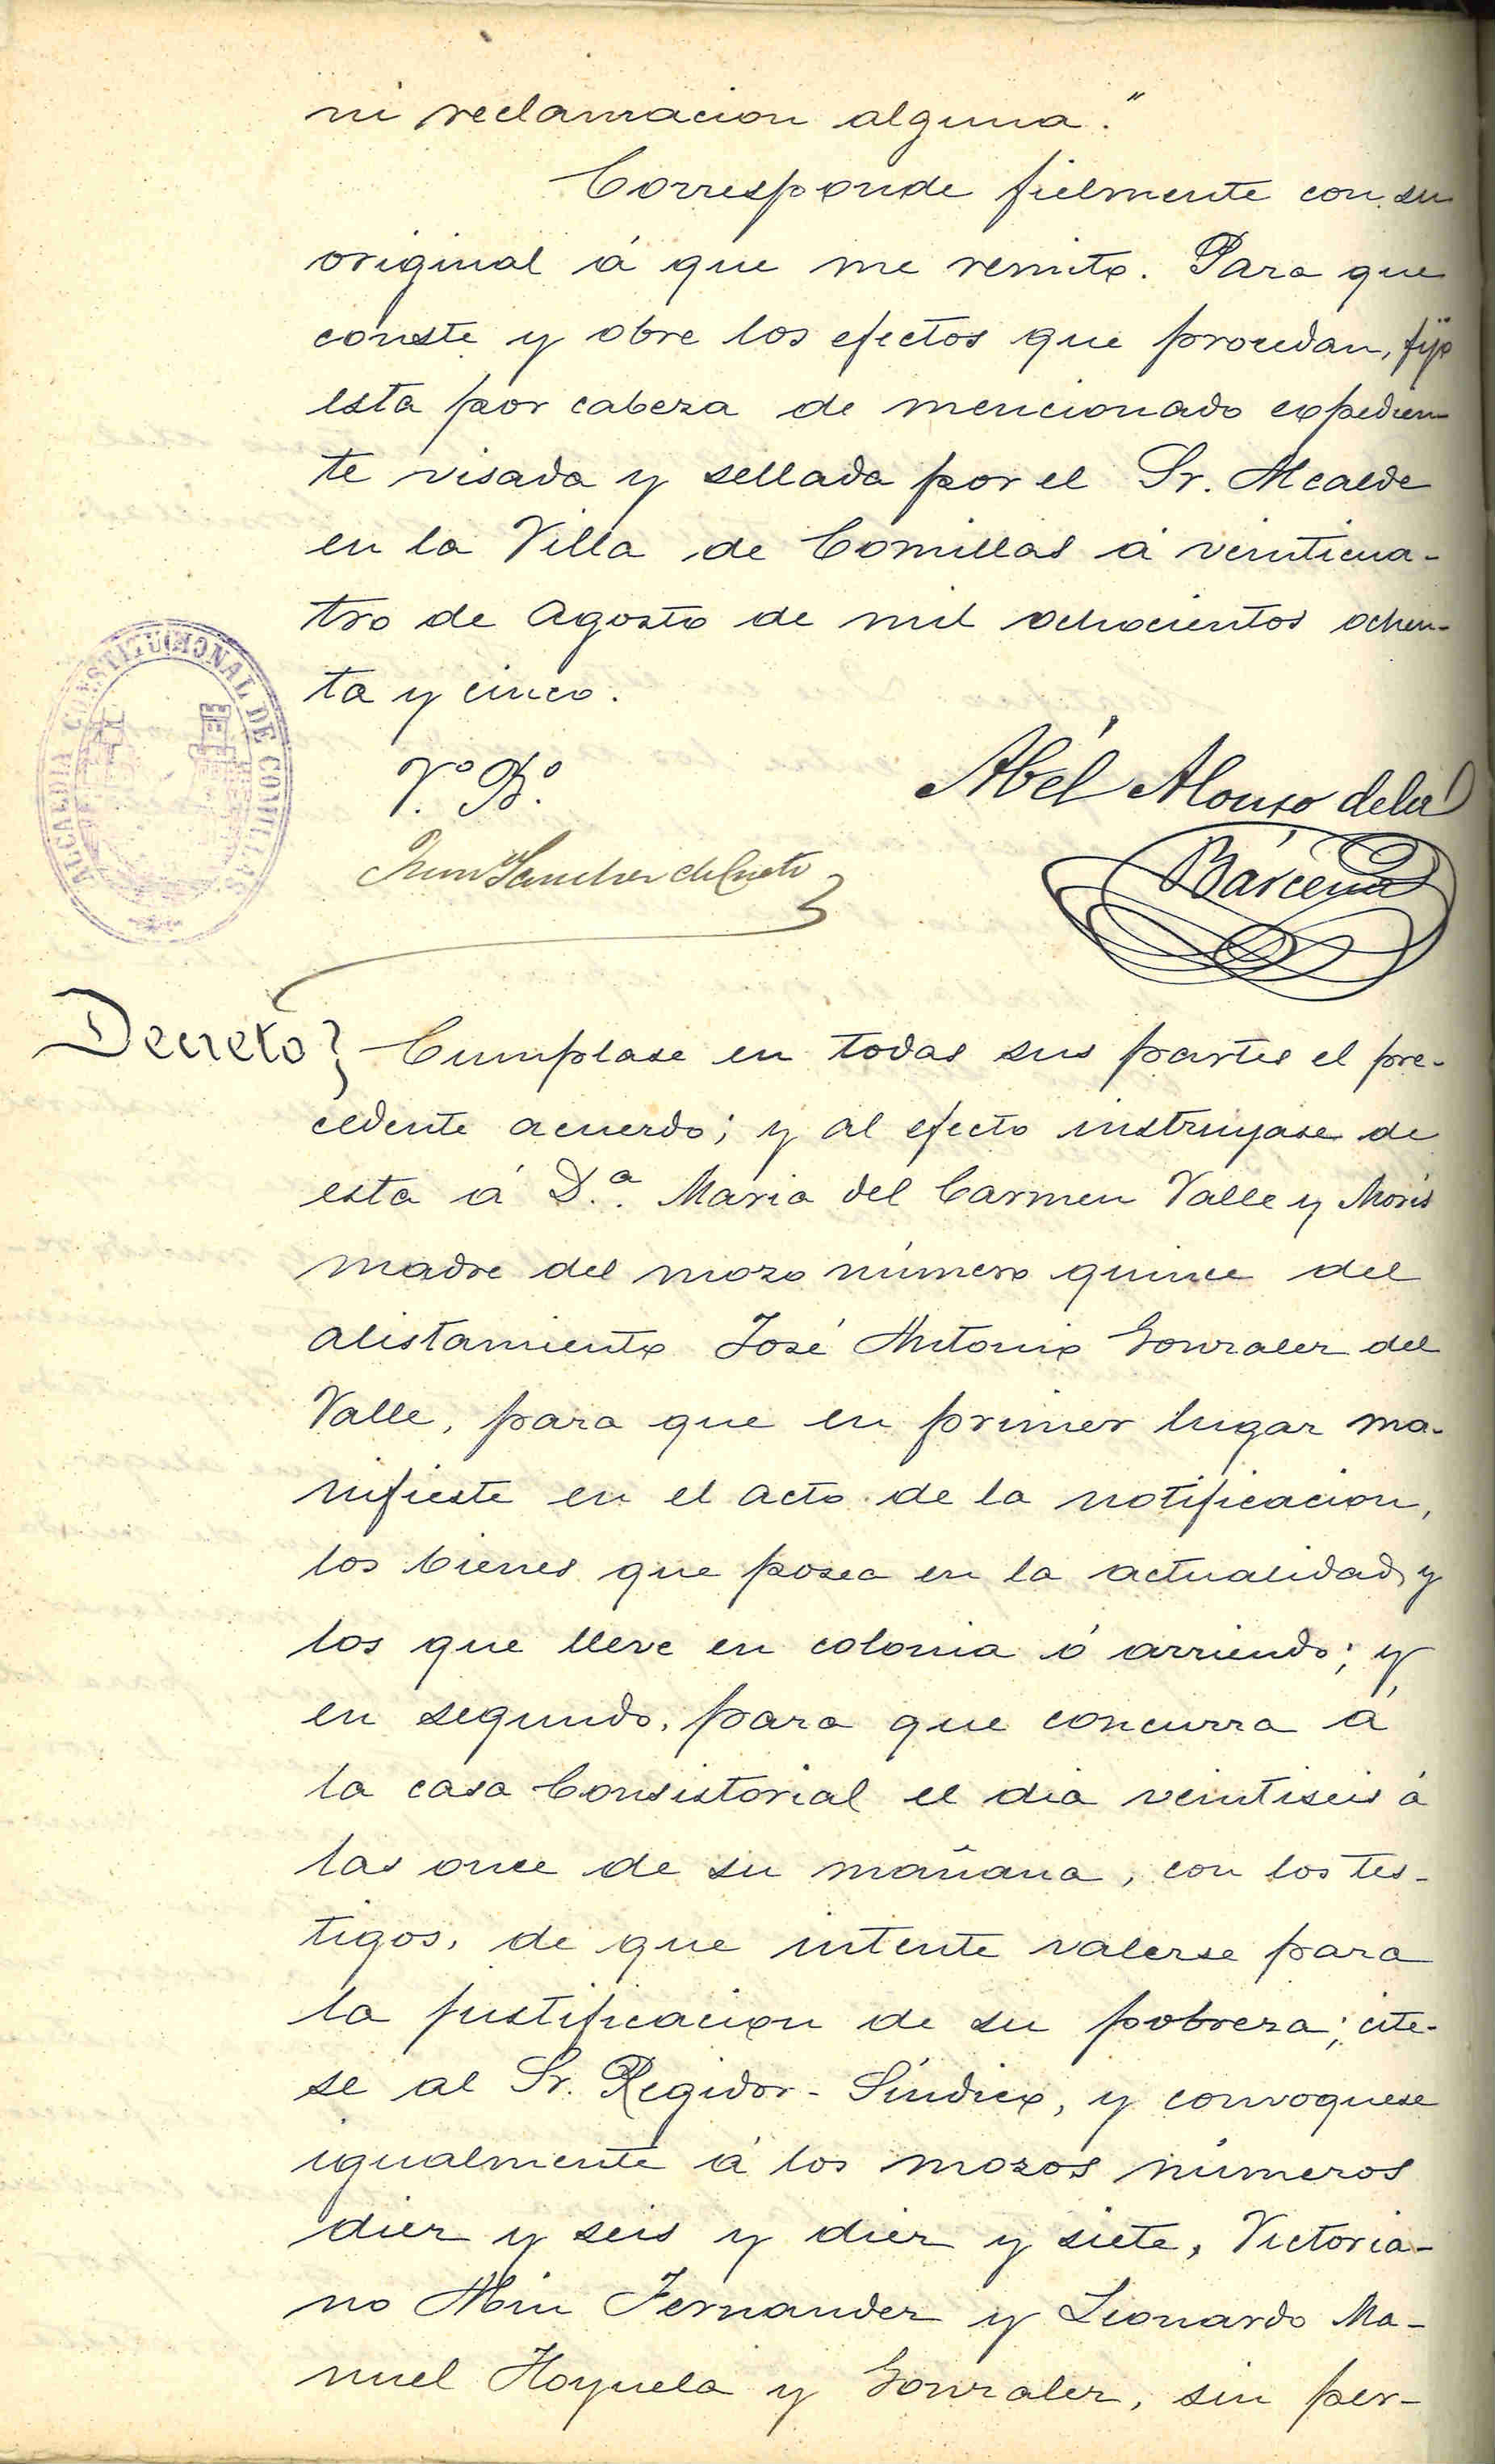 ni reclamacion alguna."
Corresponde fielmente con su
original á que me remito. Para que
conste y obre los efectos que procedan, fijo
esta por cabeza de mencionado expedien-
te visada y sellada por el Sr. Alcalde
en la Villa de Comillas á veinticua-
tro de Agosto de mil ochocientos ochen-
ta y cinco.
ALCALDIA CONSTITUCIONAL DE COMILLAS
V.º B.º
Abél Alonso de la
Juan Sanchez de Cueto
Bárcena
Decreto} Cumplase en todas sus partes el pre-
cedente acuerdo; y al efecto instruyase de
esta á D.ª Maria del Carmen Valle y Morís
madre del mozo número quince del
alistamiento José Antonio Gonzalez del
Valle, para que en primer lugar ma-
nifieste en el acto de la notificacion,
los bienes que posea en la actualidad y
los que lleve en colonia ó arriendo; y
en segundo, para que concurra á
la casa Consistorial el dia veintiseis á
las once de su mañana, con los tes-
tigos, de que intente valerse para
la justificacion de su pobreza; cite-
se al Sr. Regidor-Síndico, y convoquese
igualmente á los mozos números
diez y seis y diez y siete, Victoria-
no Abin Fernandez y Leonardo Ma-
nuel Hoyuela y Gonzalez, sin per-